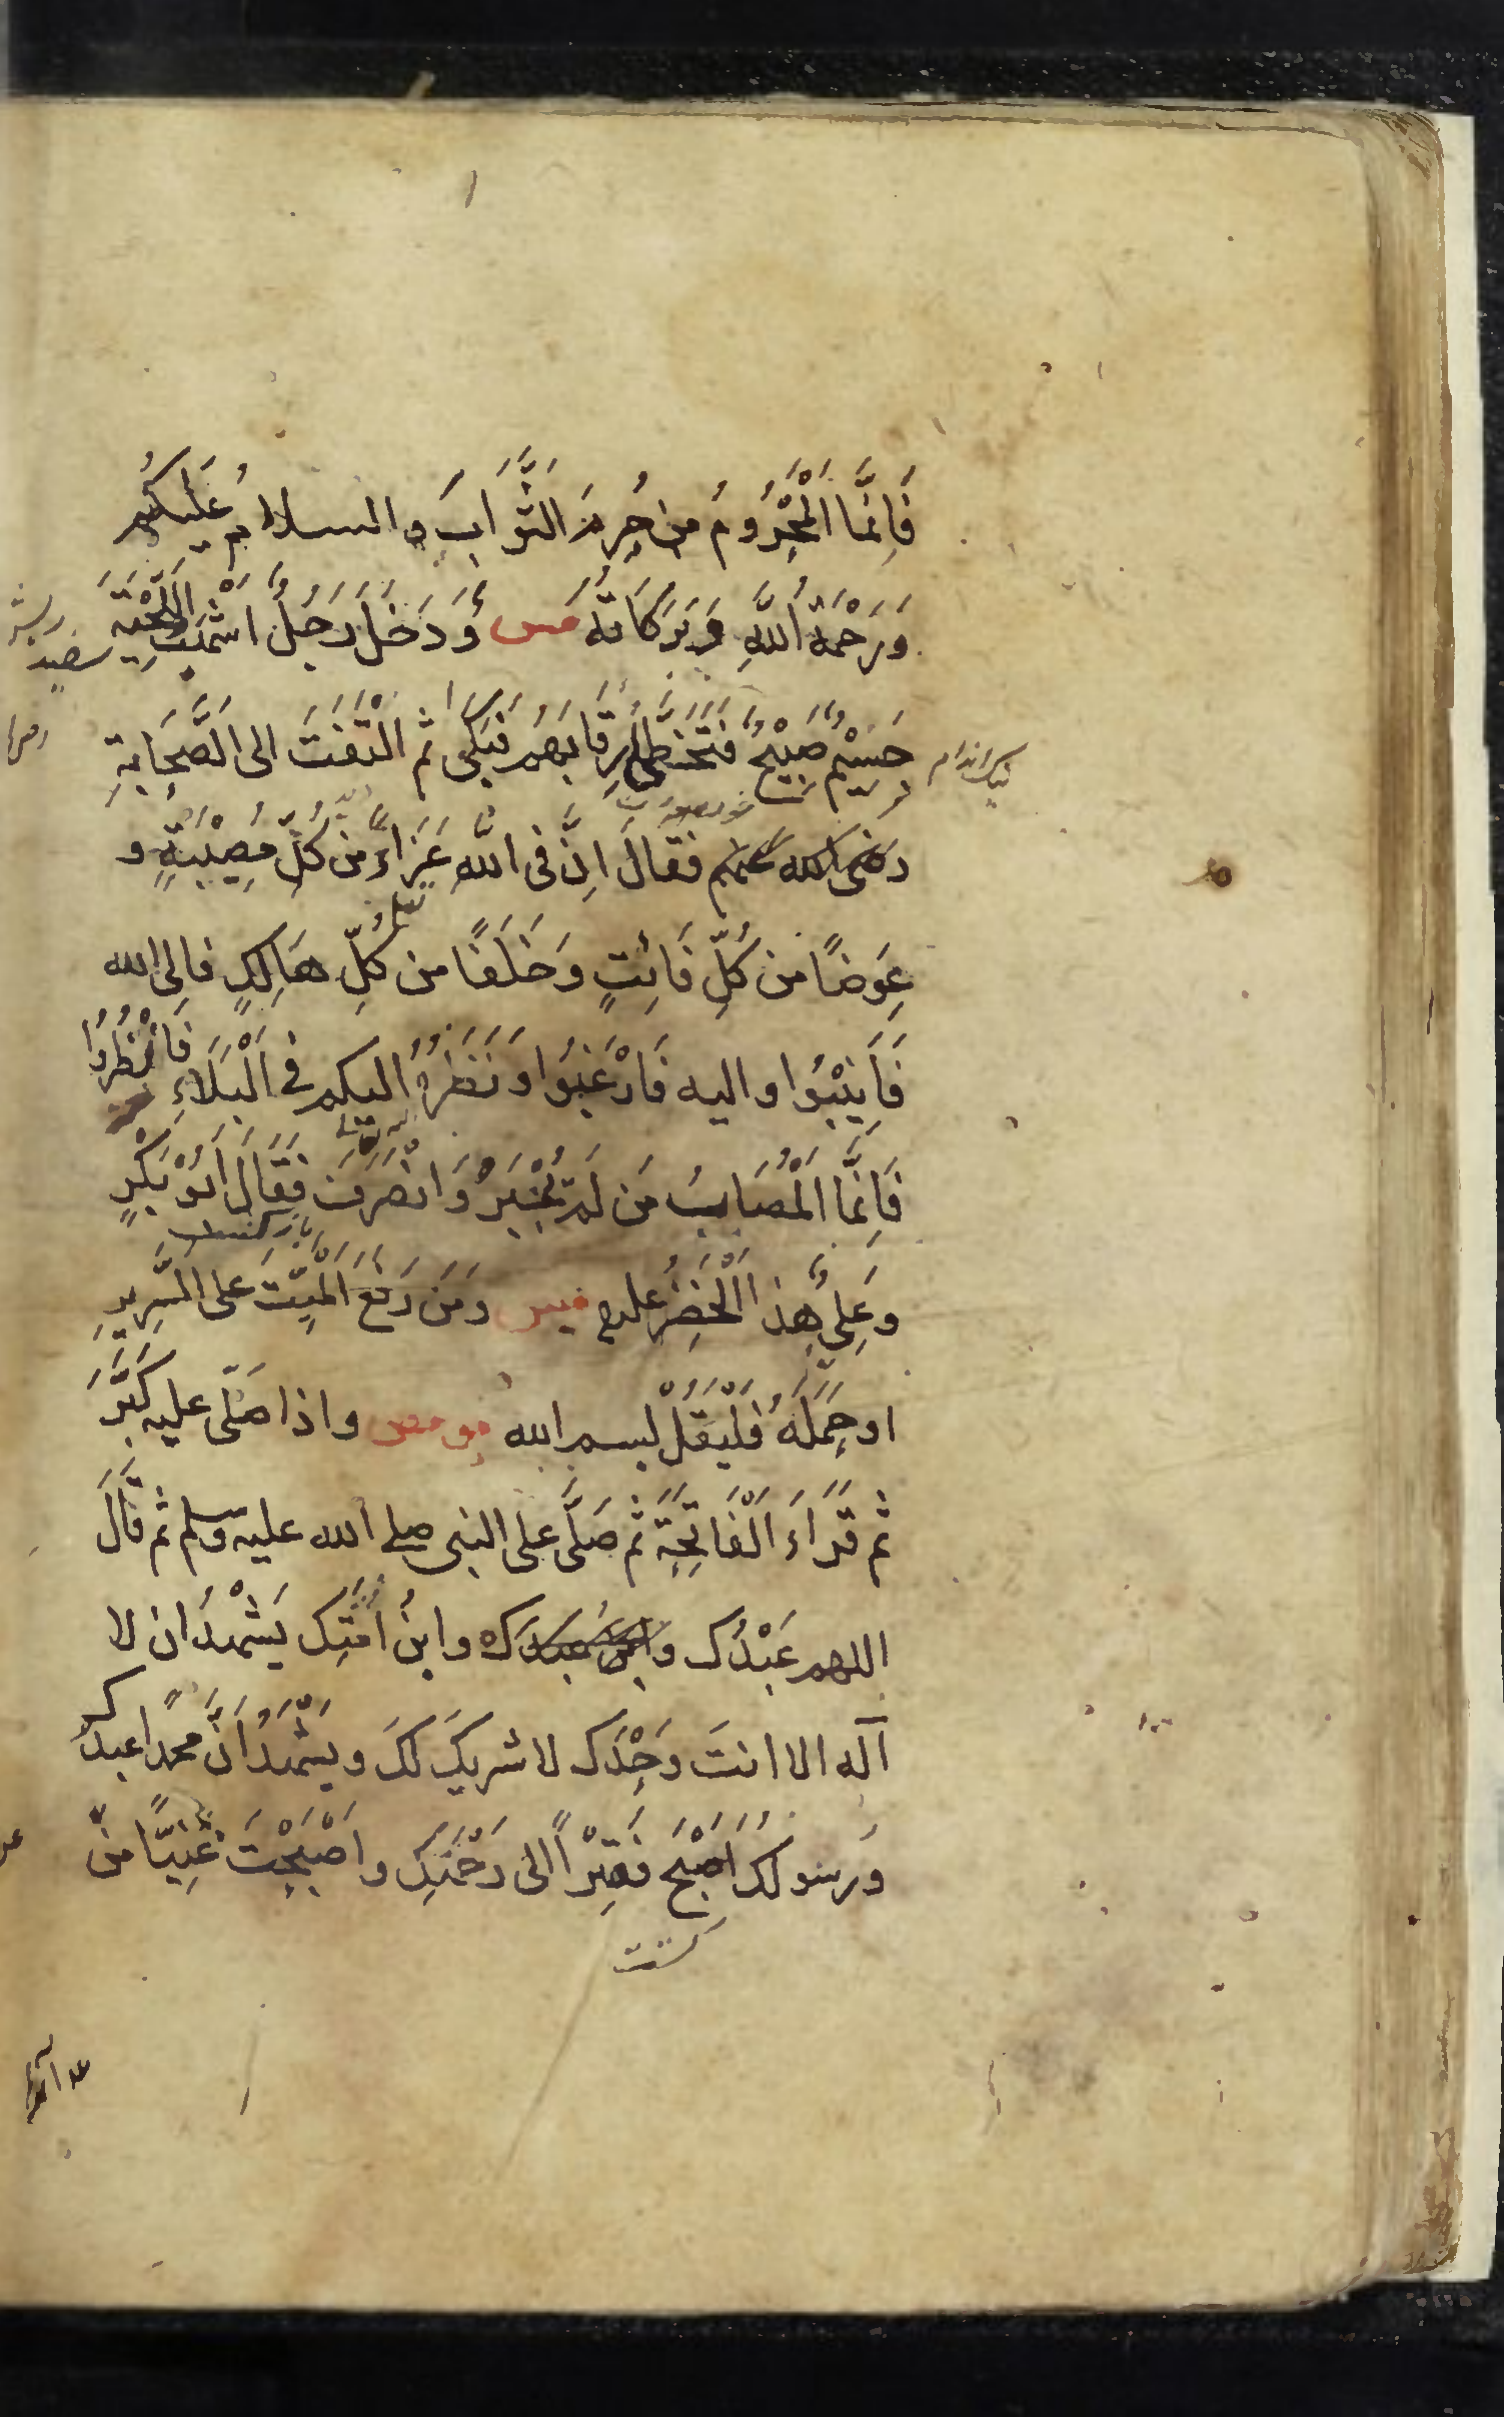 فَاِنَّمَا الْمَحْرُومُ مَن حُرِمَ الثَّوَابَ والسلامُ عَلَيكُم
وَرَحْمَةُ اللهِ وَبَرَكَاتُهُ مس وَدَخَلَ رَجُلٌ اَشْهَبُ اللِّحْيَةِ
جَسِيْمٌ صَبِيْحٌ فَتَخَطَّى رِقَابَهُم فَبَكَى ثم الْتَفَتَ الى الصَّحَابَةِ
نیک اندام
رضى الله عنهم فَقَالَ اِنَّ فى اللهِ عَزَاءً من كُلِّ مُصِيْبَةٍ و
عِوَضًا من كُلِّ فَائِتٍ وَخَلَفًا من كلِّ هَالِكٍ فالى الله
فَاَنِيْبُوا واليه فَارْغَبُوا وَنَظَرُهُ اليكم فى الْبَلَاءِ فَانْظُرُوا
فَاِنَّمَا الْمُصَابُ مَن لَم يُجْبَرْ وَانْصَرَفَ فَقَالَ اَبُوْ بَكْرٍ
وعَلِىٌّ هذا الْخَضِرُ عليه مس ومَن رَفَعَ الْمَيِّتَ على السَّرِيرِ
او حَمَلَهُ فَلْيَقُلْ بسم الله مو مص واذا صَلّى عليه كَبَّرَ
ثم قَرَاَءَ الْفَاتِحَةَ ثم صَلَّى على النبى صلى الله عليه وسلم ثم قَالَ
اللهم عَبْدُك وابن عبدك وابنُ اَمَتِك يَشْهَدُ ان لا
آله الا انتَ وَحْدَك لا شريكَ لكَ ويَشْهَدُ اَنَّ محمدا عبدكَ
وَرسولكَ اَصْبَحَ فَقِيْراً الى رَحْمَتِكَ واَصْبَحْتَ غَنِيًّا من